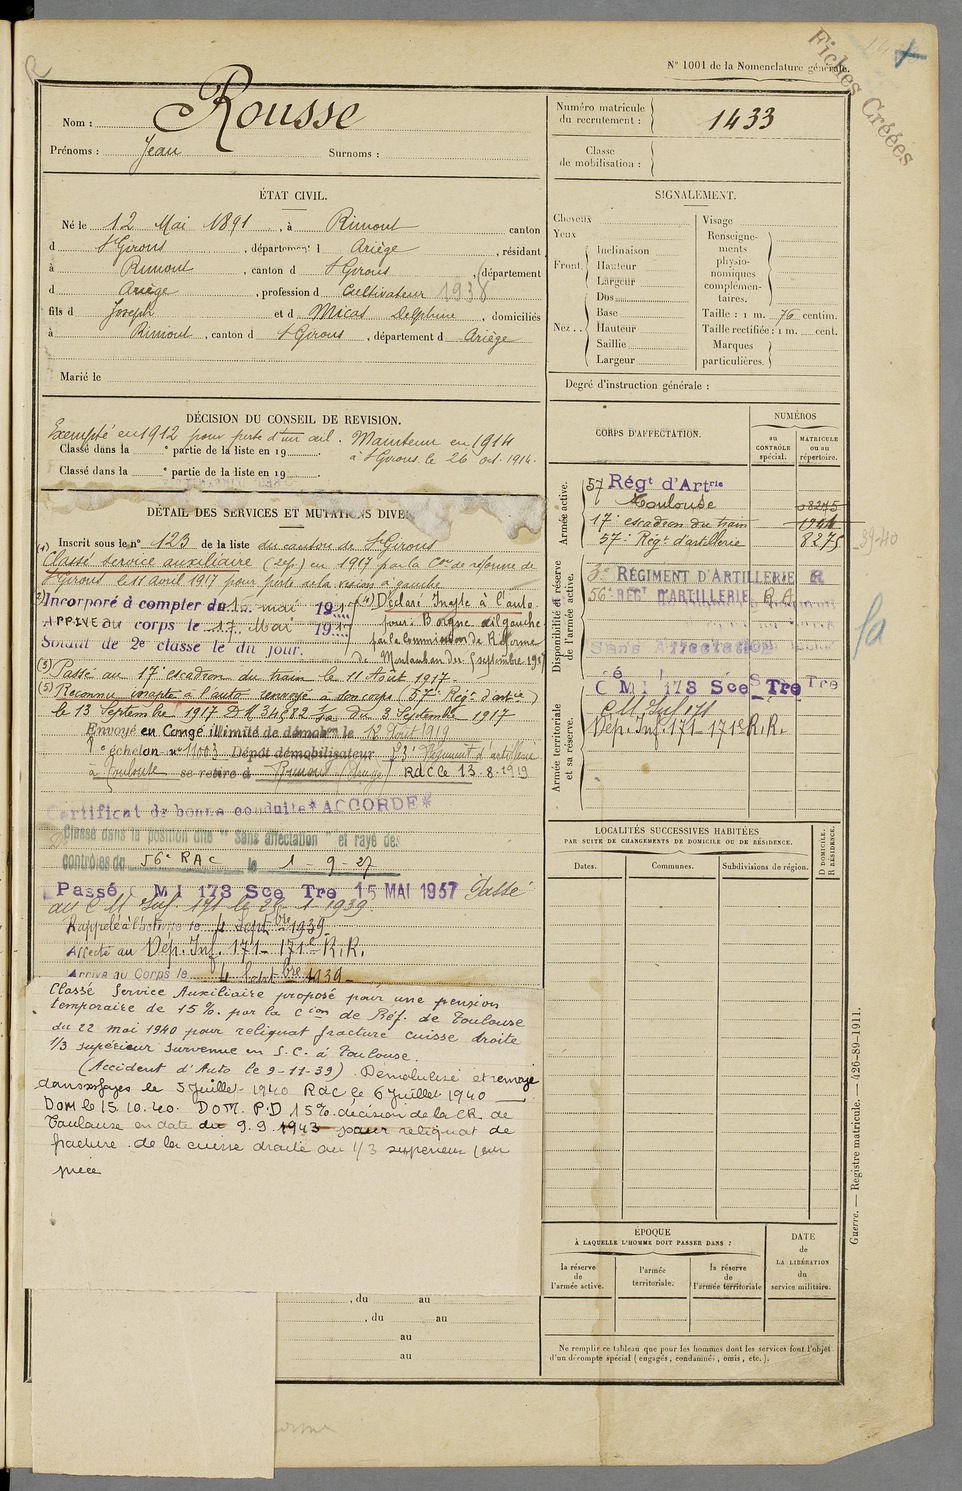 Fiches Créées
N° 1001 de la Nomenclature générale.
Nom : Rousse
Prénoms : Jean Surnoms :
Numéro matricule du recrutement : 1433
Classe de mobilisation :
ÉTAT CIVIL.
Né le 12 Mai 1891, à Rimont canton
d St Girons, département d Ariège, résidant
à Rimont, canton d St Girons, département
d Ariège, profession d Cultivateur 1938
fils d Joseph et d Micas Delphine, domiciliés
à Rimont, canton d St Girons, département d Ariège
Marié le
SIGNALEMENT.
Cheveux
Yeux
Front. Inclinaison
Hauteur
Largeur
Nez. Dos
Base
Hauteur
Saillie
Largeur
Visage
Renseignements physionomiques complémentaires.
Taille : 1 m. 76 centim.
Taille rectifiée : 1 m. cent.
Marques particulières.
Degré d'instruction générale :
DÉCISION DU CONSEIL DE REVISION.
Exempté en 1912 pour perte d'un œil. Maintenu en 1914
Classé dans la e partie de la liste en 19 à St Girons le 26 oct. 1914.
Classé dans la e partie de la liste en 19
DÉTAIL DES SERVICES ET MUTATIONS DIVE
Inscrit sous le n° 123 de la liste du canton de St Girons
(1) Classé service auxiliaire (2e p) en 1917 par la Con de réforme de
St Girons le 11 avril 1917 pour perte de la vision à gauche
2) Incorporé à compter du 15 mai 1917
ARRIVÉ au corps le 17 Mai 1917
Soldat de 2e classe le dit jour.
(4) Déclaré Inapte à l'auto
pour : Borgne œil gauche
par la Commission de Réforme
de Montauban du 5 septembre 1917
(3) Passé au 17e escadron du train le 11 Août 1917.
(5) Reconnu inapte à l'auto renvoyé à son corps (57e Régt d'artie)
le 13 Septembre 1917 DM 34982 du 3 Septembre 1917
Envoyé en Congé illimité de démobon le 12 Août 1919
échelon n° 11003 Dépôt démobilisateur 23e Régiment d'artillerie
à Toulouse se retire à Rimont (Ariège) Rdc le 13.8.1919
Certificat de bonne conduite *ACCORDÉ*
Classé dans la position dite "Sans affectation" et rayé des
contrôles du 56e RAC le 1-9-27
Passé C M I 173 Sce Tre 15 MAI 1937 Passé
au C M Inf. 171 le 1939.
Rappelé à l'activité le 4 Septbre 1939
Affecté au Dép. Inf. 171 - 171e R.R.
Arrivé au Corps le 4 Septbre 1939
Classé Service Auxiliaire proposé pour une pension
temporaire de 15%. par la Cion de Réf. de Toulouse
du 22 mai 1940 pour reliquat fracture cuisse droite
1/3 supérieur survenue en S.C. à Toulouse.
(Accident d'Auto le 9-11-39) Démobilisé et renvoyé
dans ses foyers le 5 Juillet 1940 Rdc le 6 juillet 1940
DOM le 15.10.40. DOM. P.D 15%. décision de la CR. de
Toulouse en date du 9.9.1943 pour reliquat de
fracture de la cuisse droite au 1/3 supérieur (sur
pièce
, du au
, du au
au
au
CORPS D'AFFECTATION.
NUMÉROS
au CONTRÔLE spécial.
MATRICULE ou au répertoire.
Armée active.
57 Régt d'Artrie
Toulouse 08275
17e escadron du train
57e Régt d'artillerie 8275
39-40
Disponibilité et réserve de l'armée active.
3e RÉGIMENT D'ARTILLERIE
56e RÉGt D'ARTILLERIE R A
Sans Affectation
C M I 173 Sce Tre
Armée territoriale et sa réserve.
C M Inf 171
Dép. Inf. 171 - 171e R.R.
LOCALITÉS SUCCESSIVES HABITÉES
PAR SUITE DE CHANGEMENTS DE DOMICILE OU DE RÉSIDENCE.
Dates.
Communes.
Subdivisions de région.
D DOMICILE.
R RÉSIDENCE.
ÉPOQUE
À LAQUELLE L'HOMME DOIT PASSER DANS :
la réserve de l'armée active.
l'armée territoriale.
la réserve de l'armée territoriale
DATE de LA LIBÉRATION du service militaire.
Ne remplir ce tableau que pour les hommes dont les services font l'objet
d'un décompte spécial (engagés, condamnés, omis, etc.).
Guerre. — Registre matricule. — 426-89-1911.